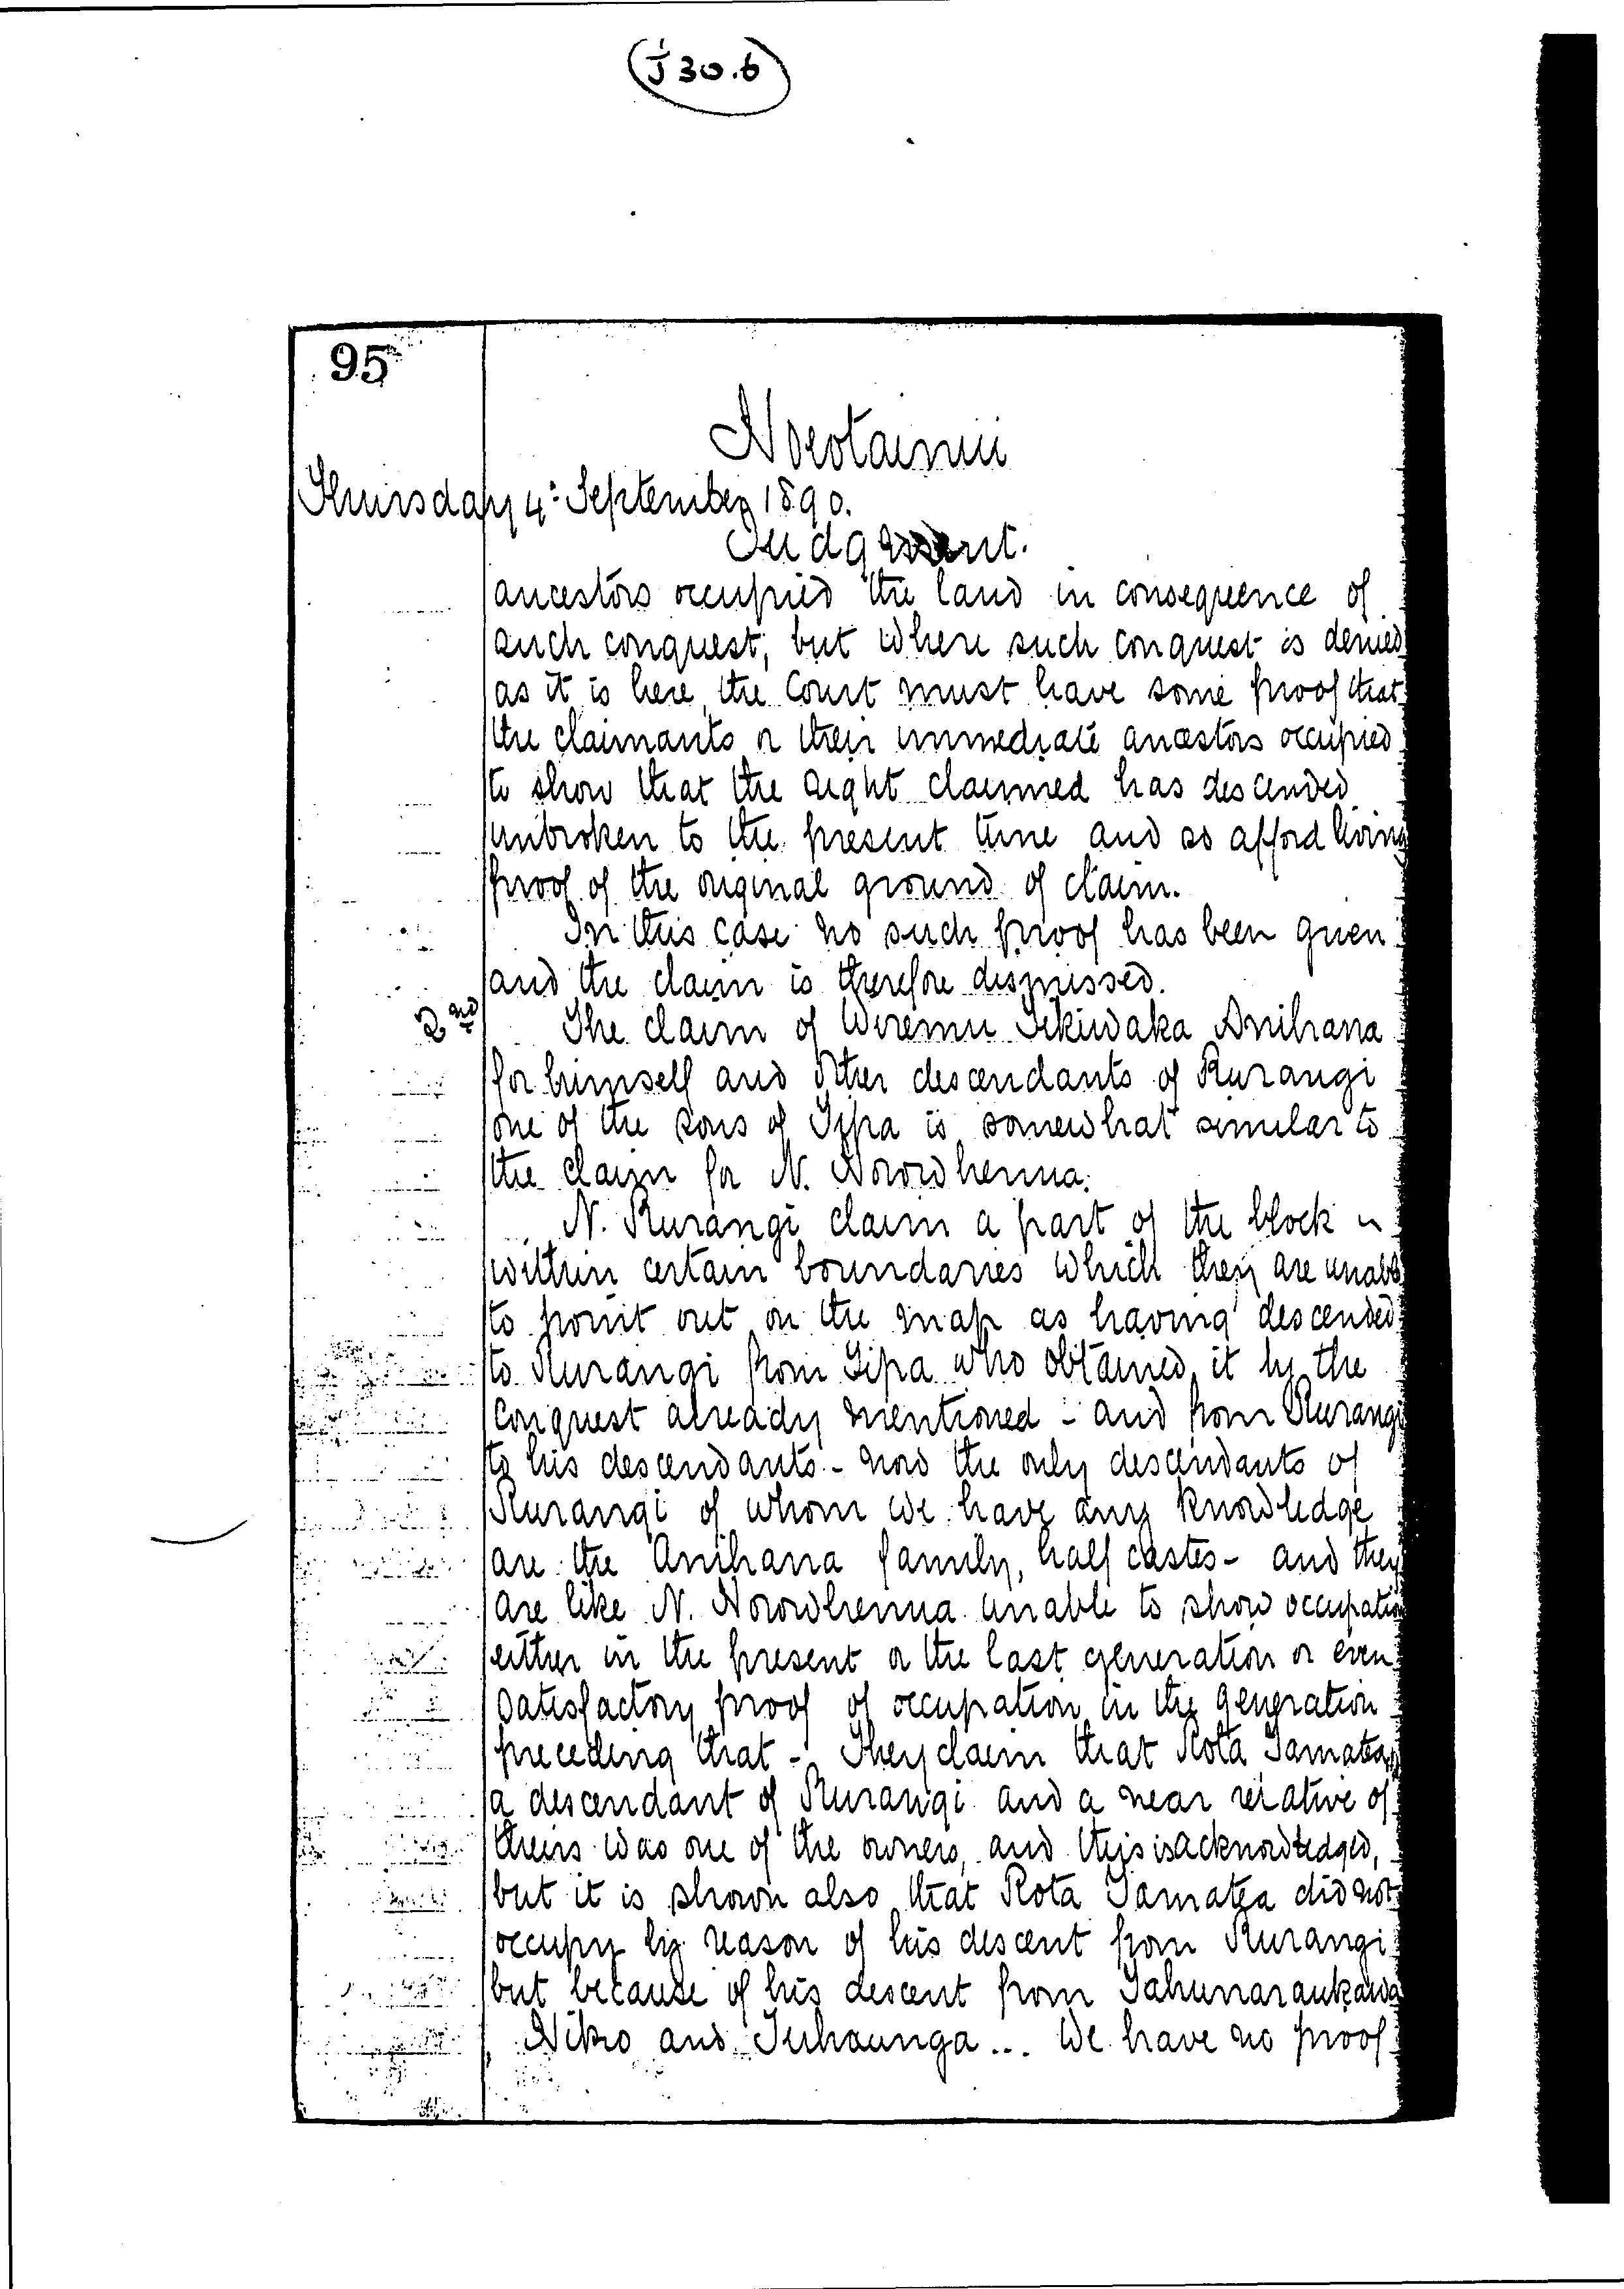 (J 30.6)
95
Horotaimu
Thursday 4: September 1890.
Judgment.
ancestors occupied the land in consequence of
such conquest, but where such conquest is denied
as it is here, the Court must have some proof that
the claimants or their immediate ancestors occupied
to show that the right claimed has descended
unbroken to the present time and so afford living
proof of the original ground of claim.
In this case no such proof has been given
and the claim is therefore dismissed.
2nd The claim of Wiremu Anihana
for himself and other descendants of Rurangi
one of the sons of Tipa is somewhat similar to
the claim for N. Horowhenua.
N. Rurangi claim a part of the block
within certain boundaries which they are unable
to point out on the map as having descended
to Rurangi from Tipa who obtained it by the
conquest already mentioned - and from Rurangi
to his descendants - now the only descendants of
Rurangi of whom we have any knowledge
are the Anihana family, half castes - and they
are like N. Horowhenua unable to show occupation
either in the present or the last generation or even
satisfactory proof of occupation in the generation
preceding that - They claim that Rota Tamatea,
a descendant of Rurangi and a near relative of
theirs was one of the owners, and this is acknowledged,
but it is shown also that Rota Tamatea did not
occupy by reason of his descent from Rurangi
but because of his descent from
and ... We have no proof